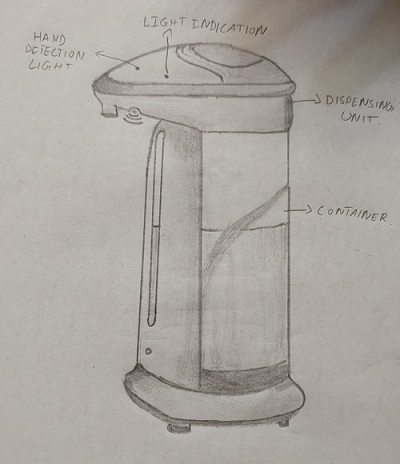 LIGHT INDICATION
HAND
DETECTION
LIGHT
DISPENSING
UNIT.
CONTAINER.